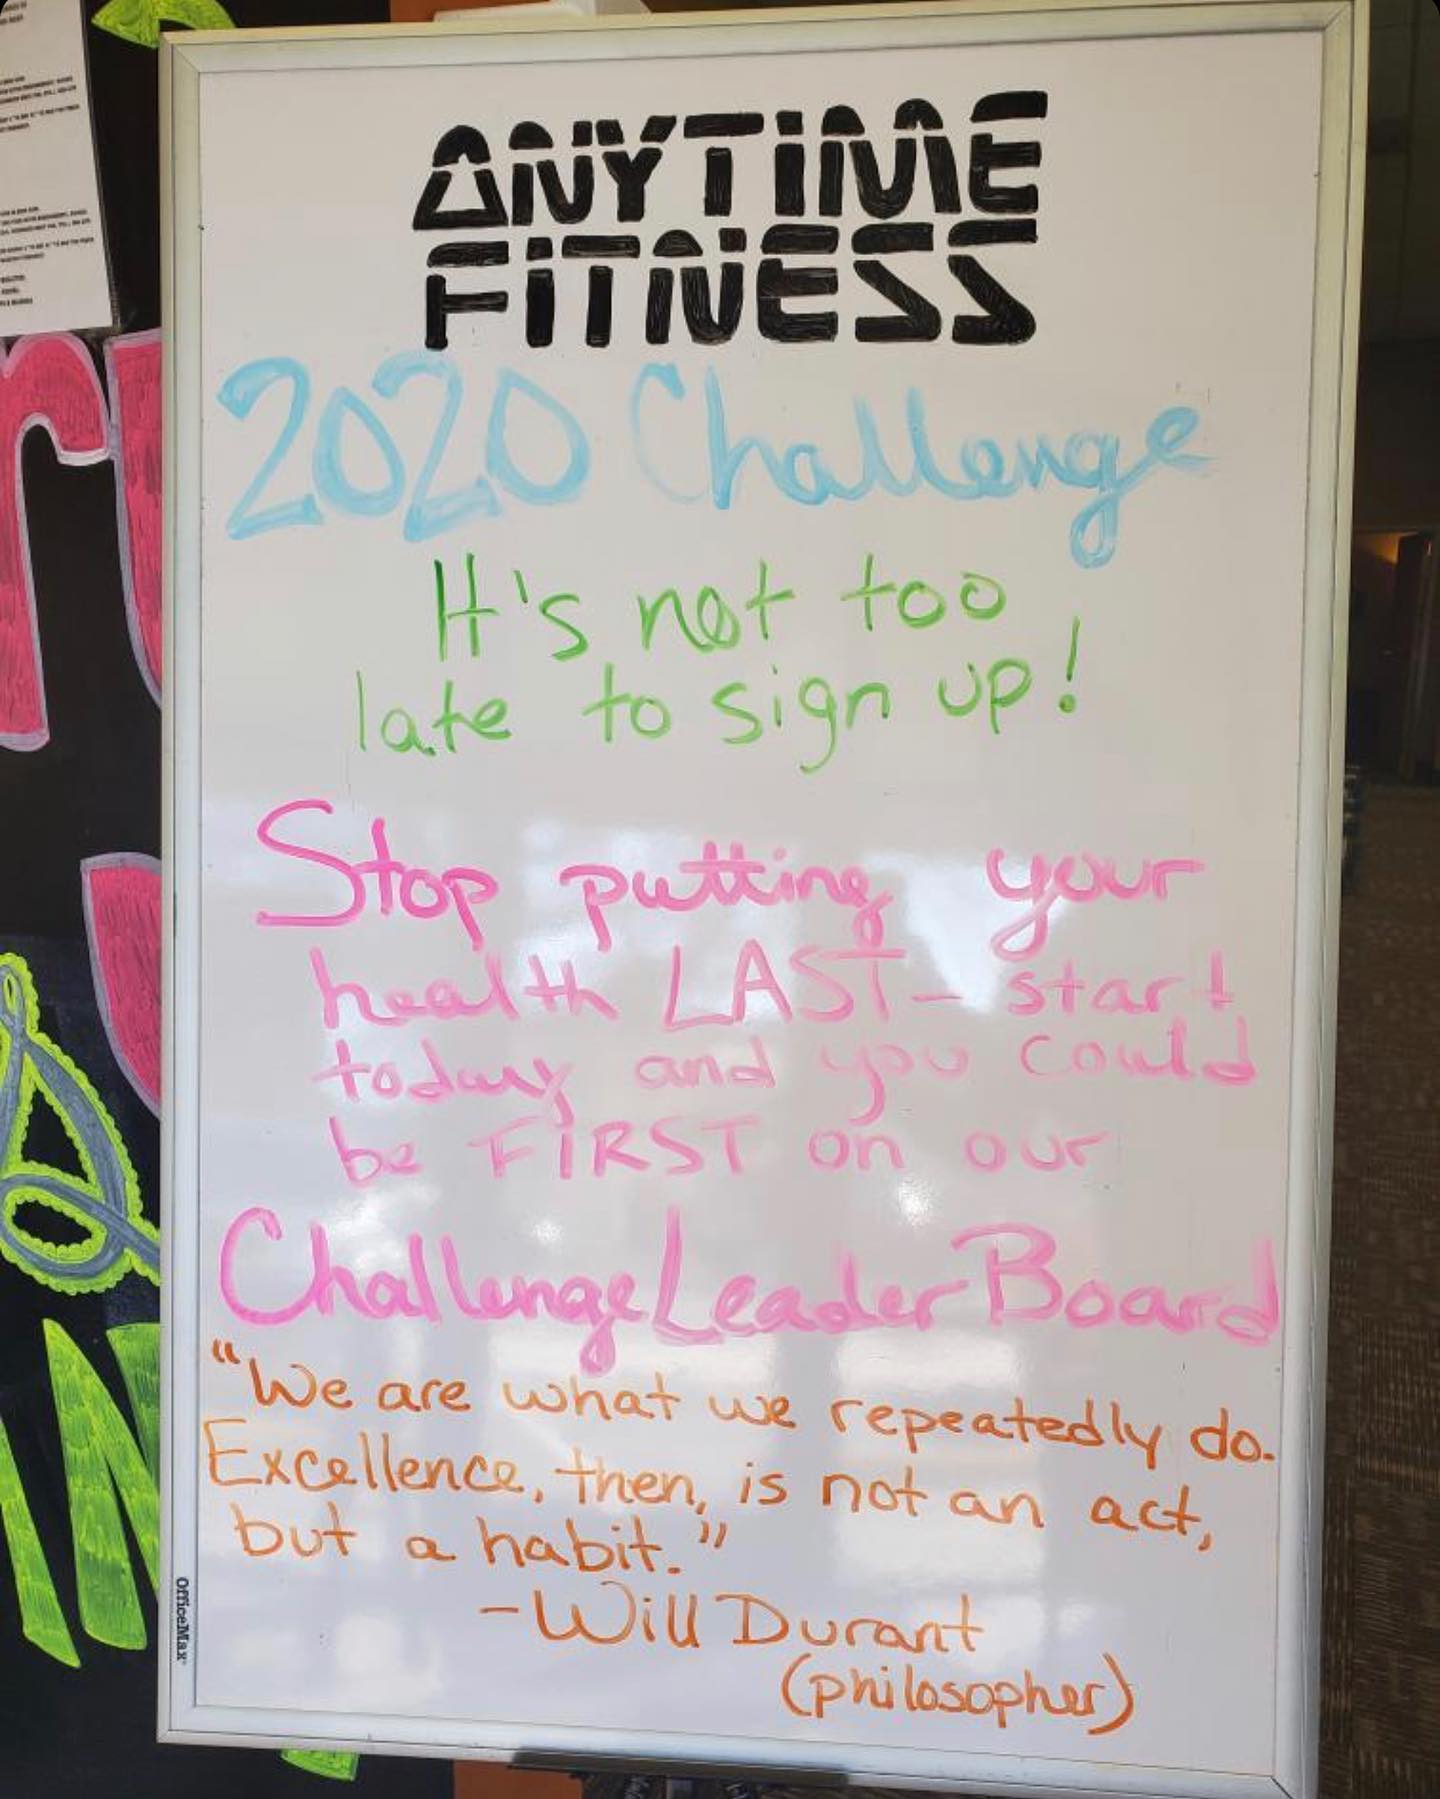 ANYTIME
FITNESS
2020 Challenge
It's not too
late to sign up!
Stop putting your
health LAST- start
today and you could
be FIRST on our
Challenge Leader Board
"We are what we repeatedly do.
Excellence, then, is not an act,
but a habit."
-Will Durant
(philosopher)
OfficeMax